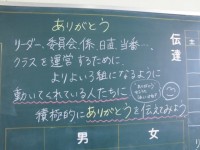 ありがとう
リーダー、委員会、係、日直、当番…、
クラスを運営するために、
よりよい3組になるように
動いてくれている人たちに
積極的にありがとうを伝えてみよう
伝達
男
女